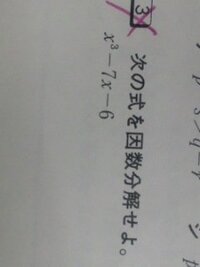 3
次の式を因数分解せよ。
x³−7x−6